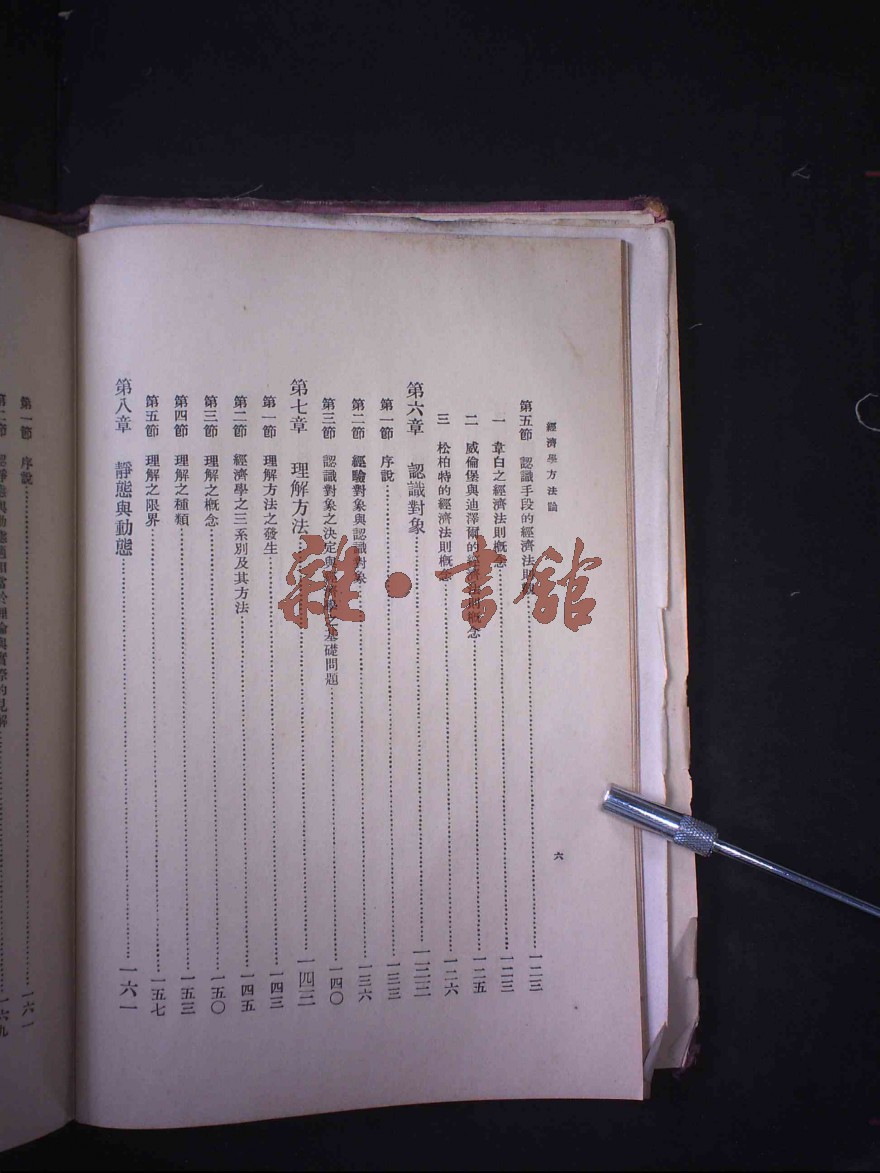 經濟學方法論
六
第五節 認識手段的經濟法則觀……一二三
一 韋白之經濟法則概念……一二三
二 威倫堡與迪澤爾的經濟法則概念……一二五
三 松柏特的經濟法則概念……一二六
第六章 認識對象……一三三
第一節 序說……一三三
第二節 經驗對象與認識對象……一三六
第三節 認識對象之決定與經濟學之基礎問題……一四〇
第七章 理解方法……一四三
第一節 理解方法之發生……一四三
第二節 經濟學之三系別及其方法……一四五
第三節 理解之概念……一五〇
第四節 理解之種類……一五三
第五節 理解之限界……一五七
第八章 靜態與動態……一六一
第一節 序說……一六一
第二節
雜·書舘